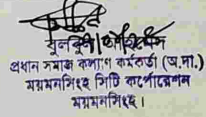 প্রধান সমাজ কল্যাণ কর্মকর্তা (অ.দা.)
ময়মনসিংহ সিটি কর্পোরেশন
ময়মনসিংহ।